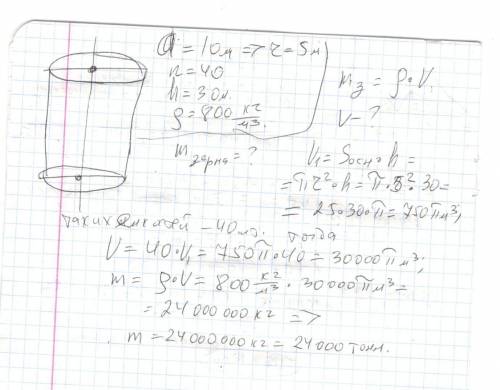 d = 10м => r = 5м
n = 40
h = 30м.
ρ = 800 кг/м3.
m зерна = ?
mз = ρ • V.
V - ?
V1 = Sосн • h =
= πr² • h = π • 5² • 30 =
= 25 • 30 • π = 750π м3;
таких ёмкостей - 40 шт. тогда
V = 40 • V1 = 750π • 40 = 30000π м3;
m = ρ • V = 800 кг/м3 • 30000π м3 =
= 24 000 000 кг =>
m = 24 000 000 кг = 24 000 тонн.